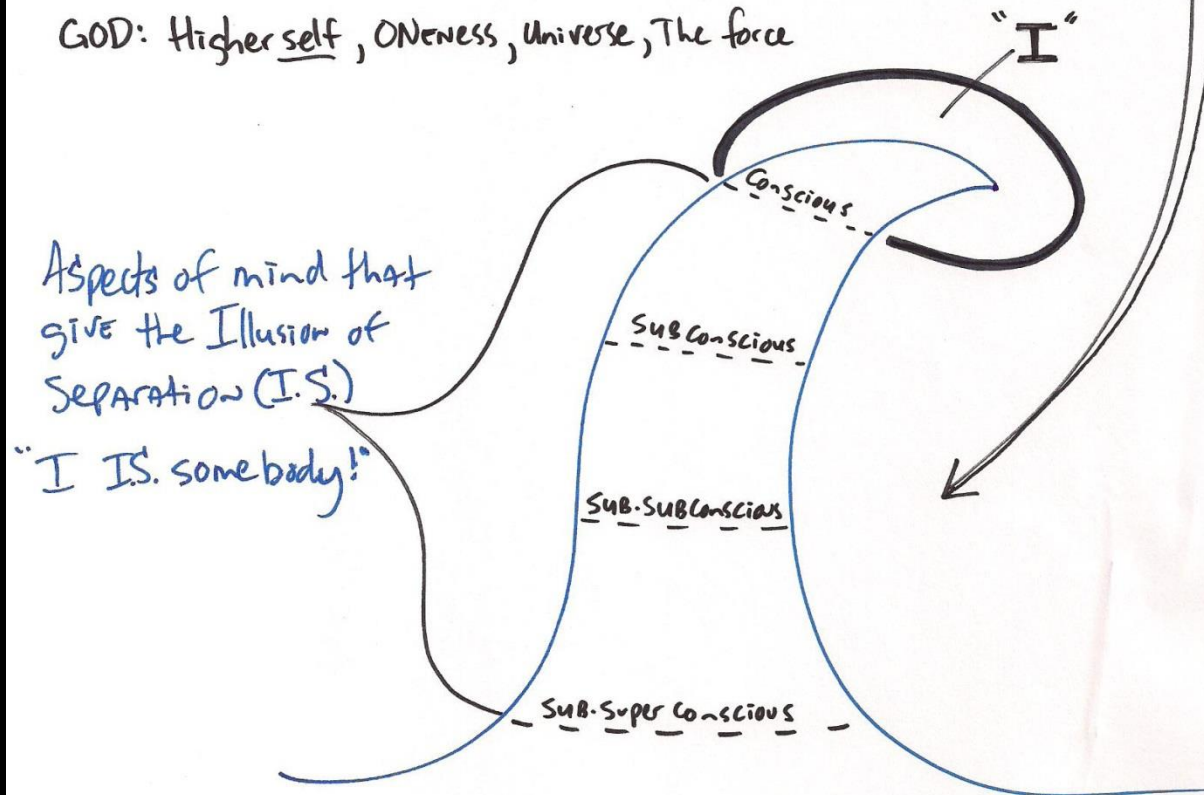 GOD: Higher self, ONENESS, Universe, The force
"I"
Conscious
Aspects of mind that
give the Illusion of
Separation (I.S.)
"I I.S. somebody!"
SubConscious
SUB.SUBConscious
SUB.Super Conscious